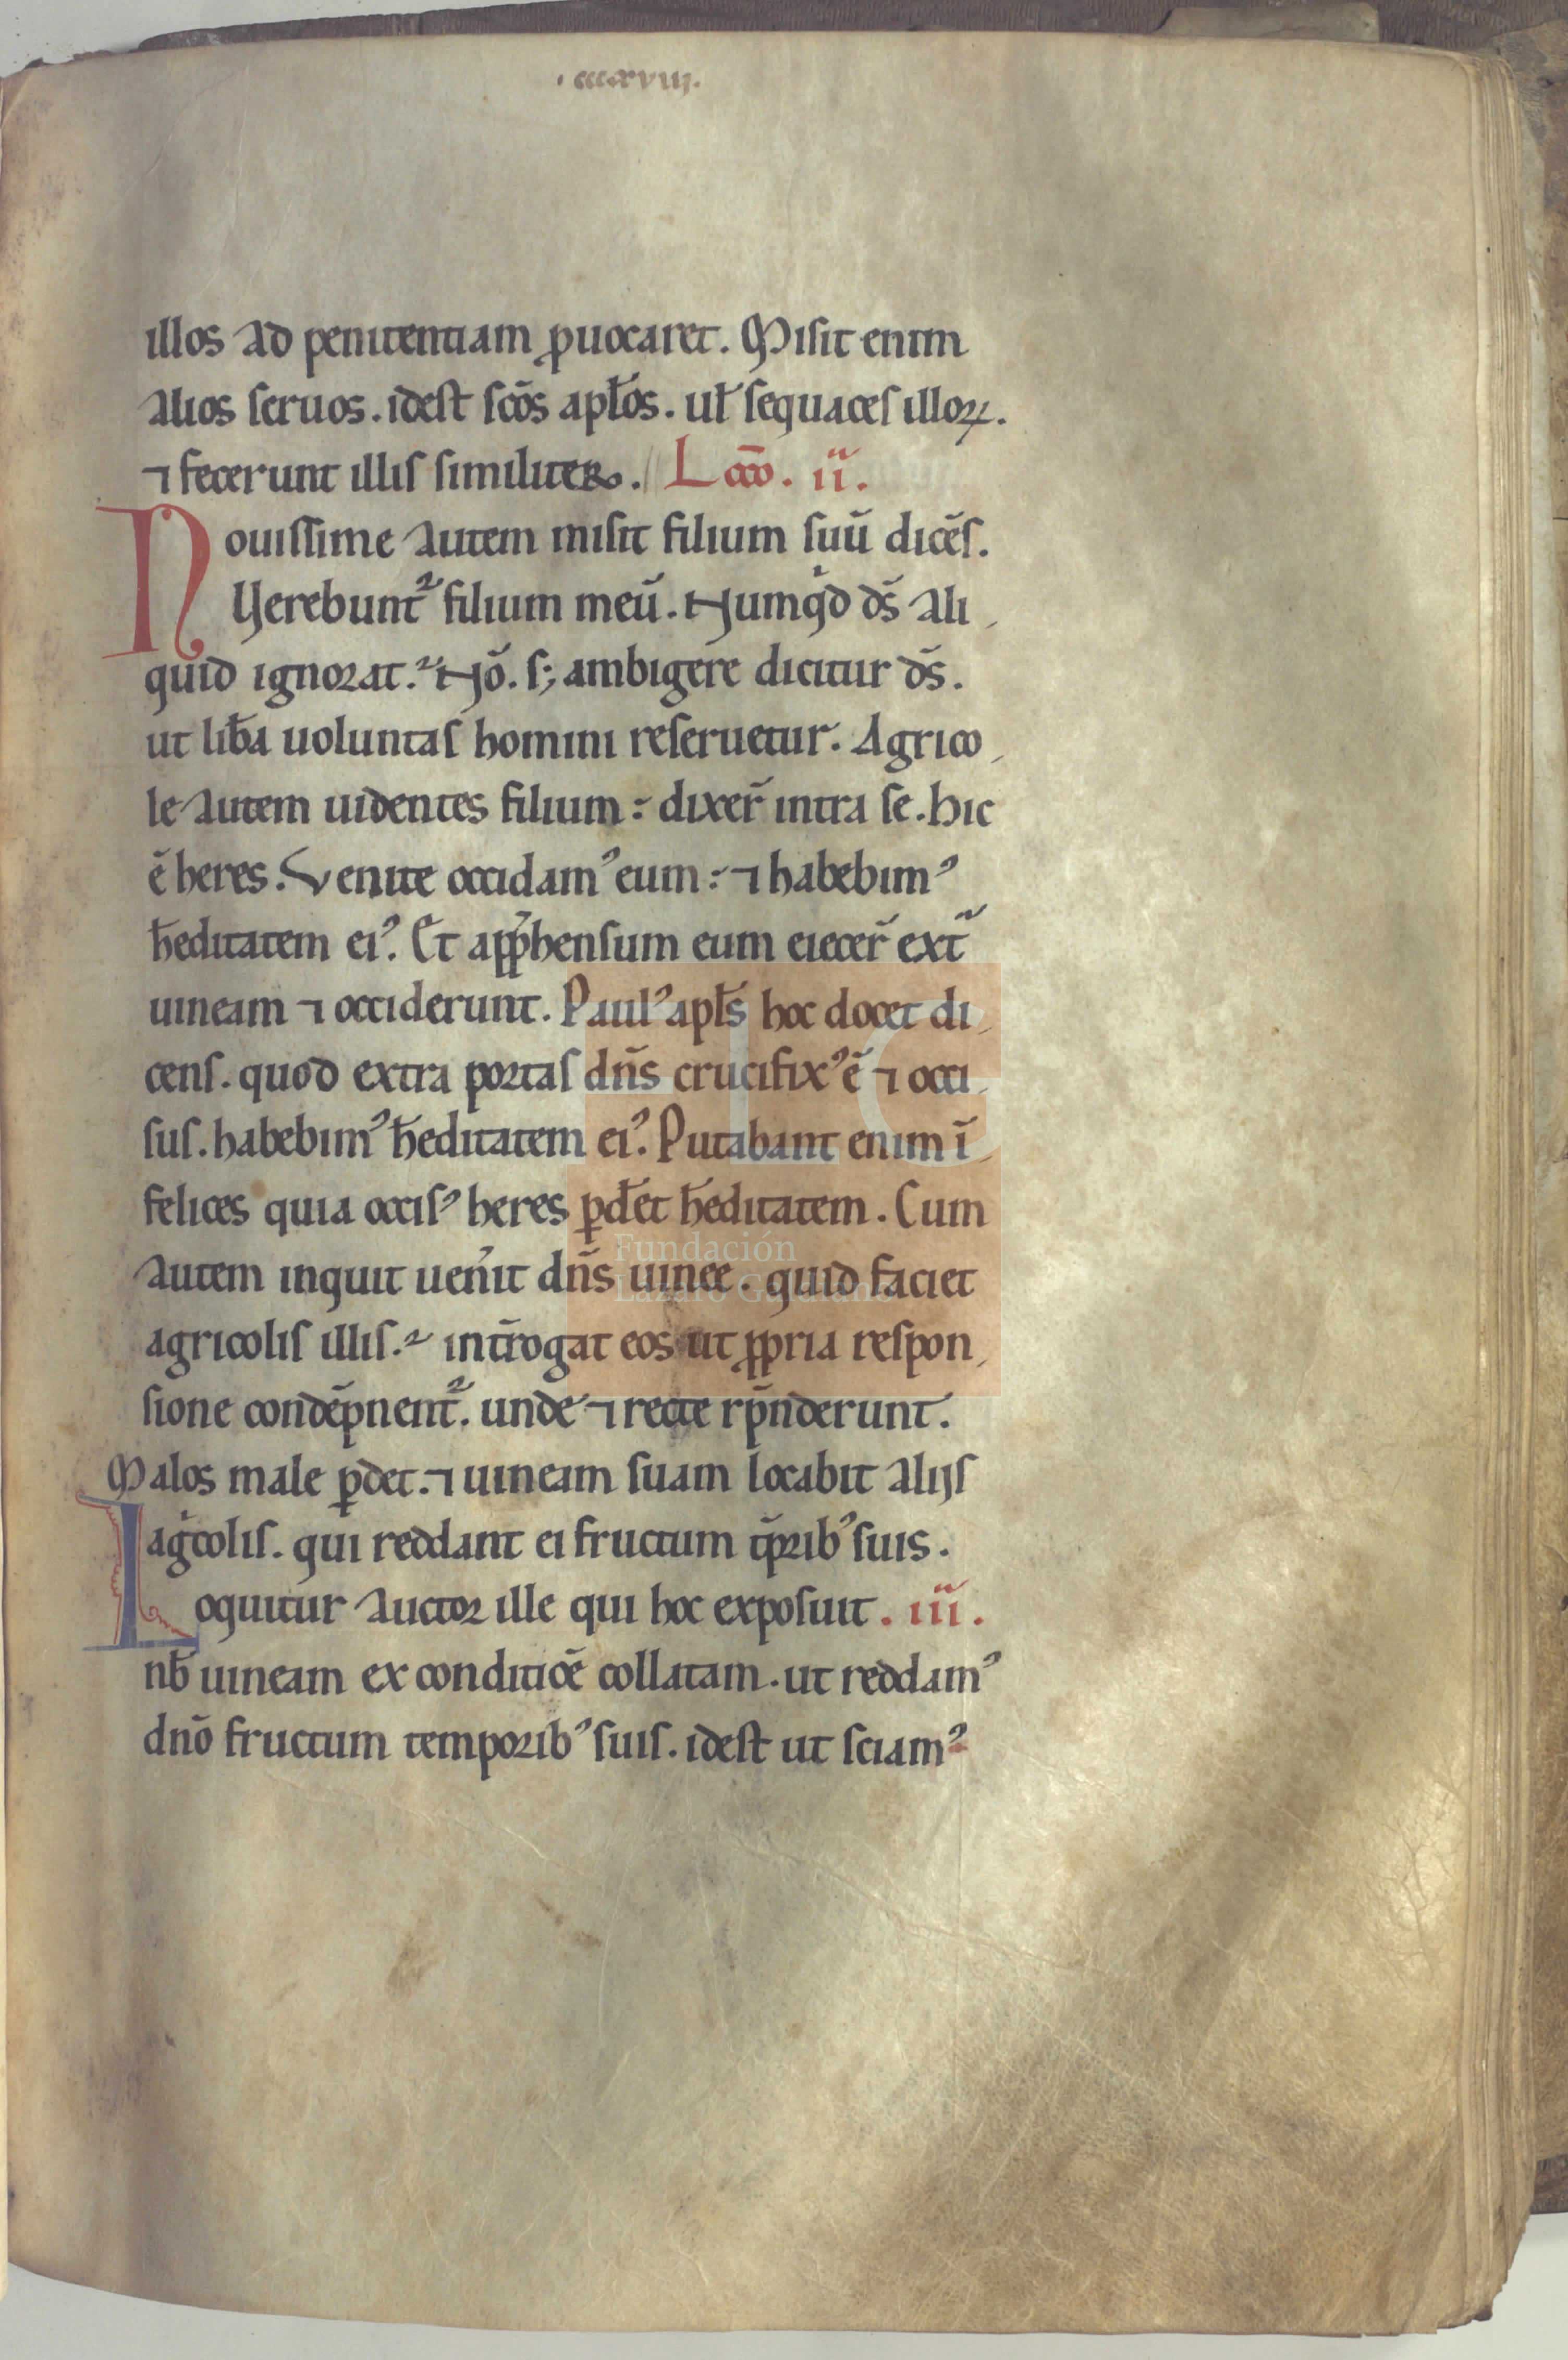 . ccccxviij.
illos ad penitentiam ꝓuocaret. Misit enim
alios seruos. idest sc̄os apl̄os. ul̄ sequaces illoꝝ.
⁊ fecerunt illis similiter. Lcc̄o. ii.
Nouissime autem misit filium suū dicēs.
Uerebunt᷑ filium meū. Numqͥd ds̄ ali
quid ignorat. Nō. sꝫ ambigere dicitur ds̄.
ut lib̄a uoluntas homini reseruetur. Agrico
le autem uidentes filium: dixer̄ intra se. hic
ē heres. Venite occidamꝰ eum: ⁊ habebimꝰ
h̄editatem eiꝰ. Et app̄hensum eum eiecer̄ ext̄
uineam ⁊ occiderunt. Paulꝰ apl̄s hoc docet di
cens. quod extra portas dn̄s crucifixꝰ ē ⁊ occi
sus. habebimꝰ h̄editatem eiꝰ. Putabant enim ī
felices quia occisꝰ heres ꝑd̄et h̄editatem. Cum
autem inquit uen̄it dn̄s uinee. quid faciet
agricolis illis. int̄rogat eos ut ꝓpria respon
sione condēpnent᷑. unde ⁊ recte rp̄nderunt.
Malos male ꝑdet. ⁊ uineam suam locabit alijs
agͥcolis. qui reddant ei fructum t̄ꝑribꝰ suis.
Loquitur auctor ille qui hoc exposuit. iii.
nb̄ uineam ex conditiōe collatam. ut reddamꝰ
dn̄o fructum temporibꝰ suis. idest ut sciamꝰ
Fundación
Lázaro Galdiano